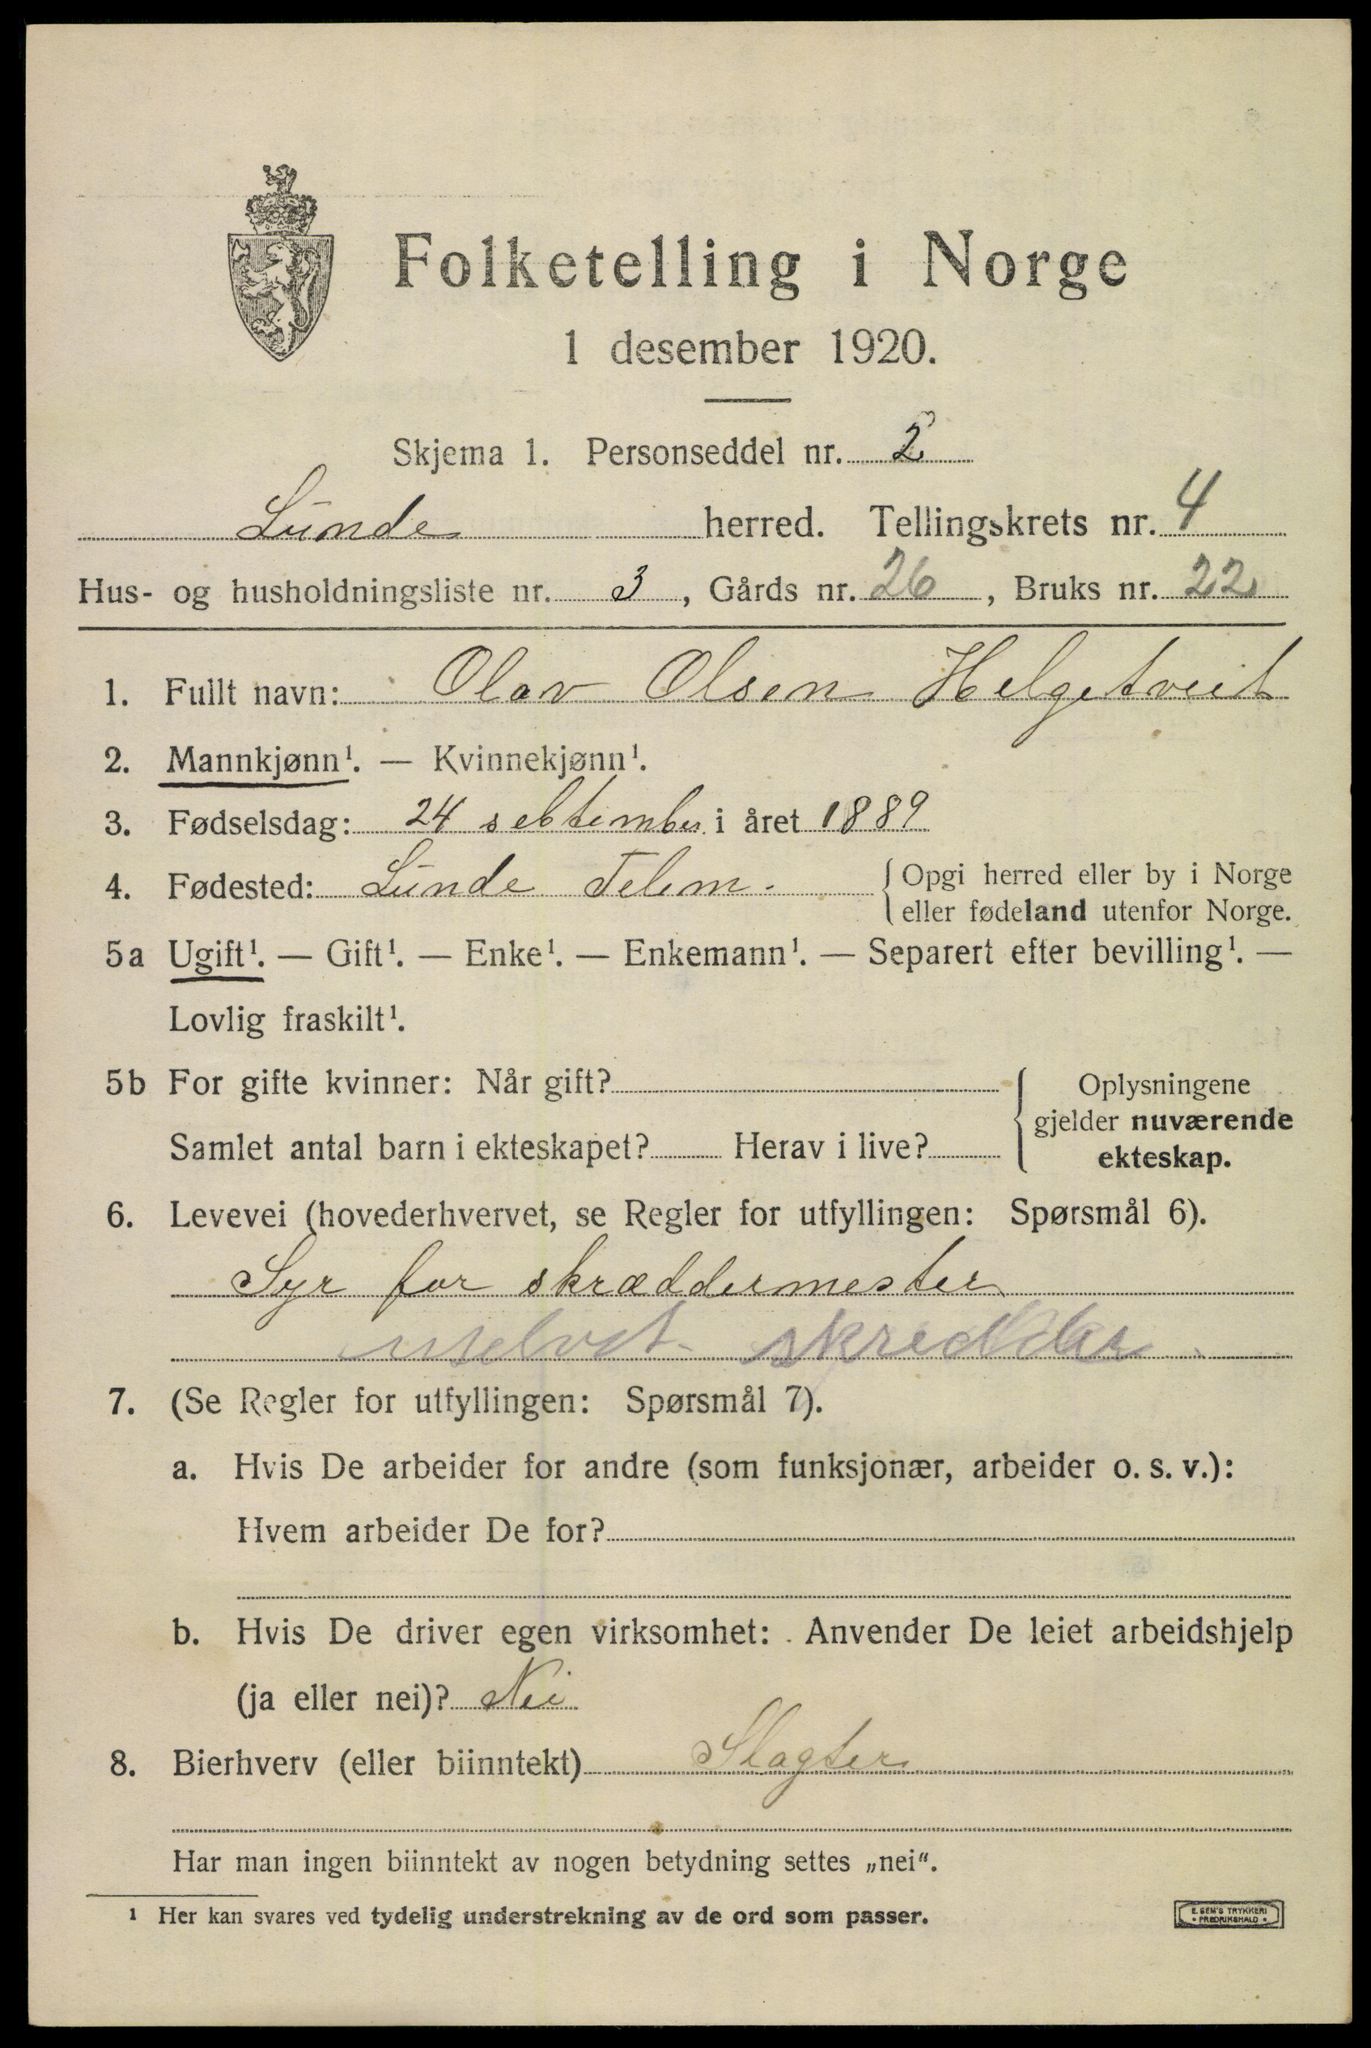 Folketelling i Norge
1 desember 1920.
Skjema 1. Personseddel nr. 2
Lunde herred. Tellingskrets nr. 4
Hus- og husholdningsliste nr. 3, Gårds nr. 26, Bruks nr. 22
1. Fullt navn: Olav Olsen Helgetveit
2. Mannkjønn¹. — Kvinnekjønn¹.
3. Fødselsdag: 24 sebtember i året 1889
4. Fødested: Lunde Telem. { Opgi herred eller by i Norge
eller fødeland utenfor Norge.
5a Ugift¹. — Gift¹. — Enke¹. — Enkemann¹. — Separert efter bevilling¹. —
Lovlig fraskilt¹.
5b For gifte kvinner: Når gift? { Oplysningene
gjelder nuværende
Samlet antal barn i ekteskapet? Herav i live?
ekteskap.
6. Levevei (hovederhvervet, se Regler for utfyllingen: Spørsmål 6).
Syr for skræddermester
uselvst. skredder
7. (Se Regler for utfyllingen: Spørsmål 7).
a. Hvis De arbeider for andre (som funksjonær, arbeider o. s. v.):
Hvem arbeider De for?
b. Hvis De driver egen virksomhet: Anvender De leiet arbeidshjelp
(ja eller nei)? Nei
8. Bierhverv (eller biinntekt) Slagter
Har man ingen biinntekt av nogen betydning settes „nei“.
¹ Her kan svares ved tydelig understrekning av de ord som passer.
E. SEM'S TRYKKERI
• FREDRIKSHALD •